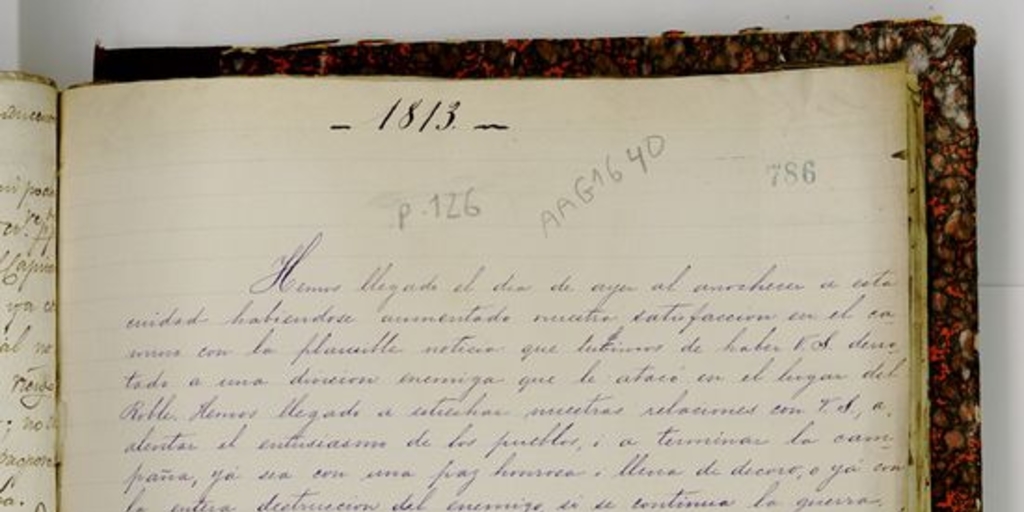 — 1813. —
AAG1640
786
p. 126
Hemos llegado el dia de ayer al anochecer a esta
cuidad habiendose aumentado nuestra satisfaccion en el ca-
mino con la plausible noticia que tubimos de haber V.S. derro-
tado a una division enemiga que le atacó en el lugar del
Roble. Hemos llegado a estrechar nuestras relaciones con V.S., a
alentar el entusiasmo de los pueblos, i a terminar la cam-
paña, yá sea con una paz honrosa i llena de decoro, o yá con
la entera destruccion del enemigo si se continúa la guerra.